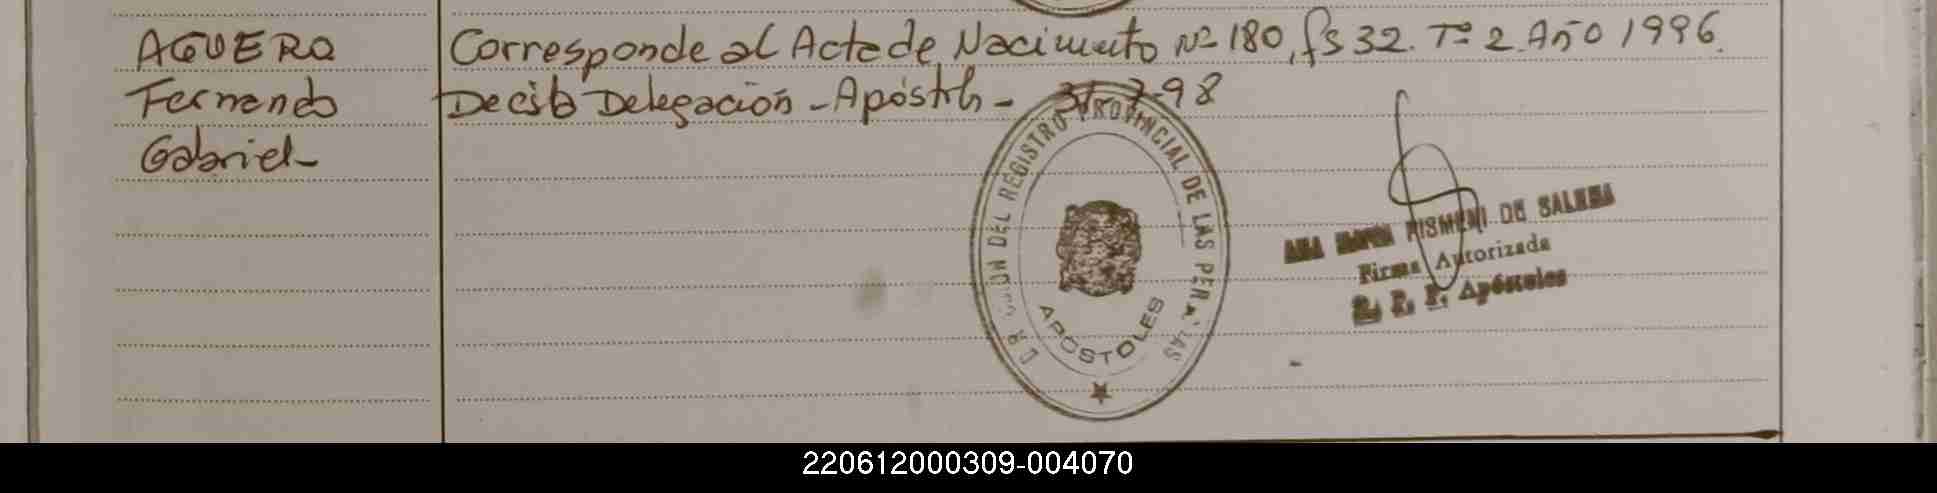 AGUERO
Fernando
Gabriel
Corresponde al Acta de Nacimiento Nº 180, fs 32. Tº 2. Año 1996.
De esta Delegación - Apóstoles - 31-7-98
DIRECCION DEL REGISTRO PROVINCIAL DE LAS PERSONAS
APOSTOLES
ANA MARIA PISMENI DE
Firma Autorizada
R. P. P. Apóstoles
220612000309-004070